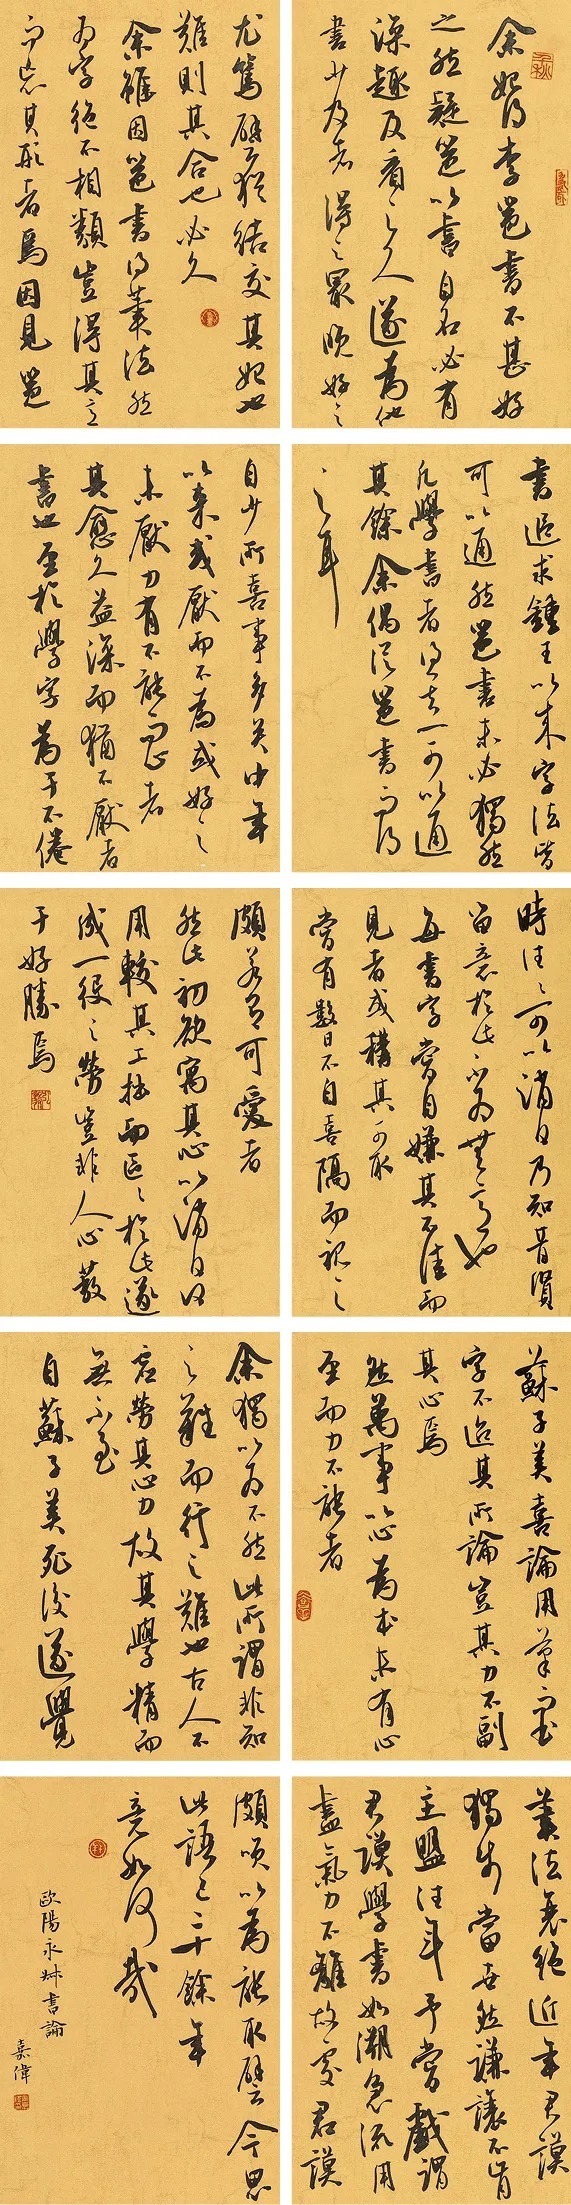 余始得李邕書不甚好
之然疑邕以書自名必有
深趣及看之久遂為他
書少及者得之最晚好之
尤篤譬猶結交其始也
難則其合也必久
余雖因邕書得筆法然
為字絕不相類豈得其意
而忘其形者焉因見邕
書追求鍾王以來字法皆
可以通然邕書未必獨然
凡學書者得其一可以通
其餘余偶從邕書而得
之耳
自少所喜事多矣中年
以來或厭而不為或好之
未厭力有不能而止者
其愈久益深而猶不厭者
書也至於學字為于不倦
時往往可以消日乃知昔賢
留意於此不為無意也
每書字嘗自嫌其不佳而
見者或稱其可取
嘗有數日不自喜隔而視之
頗若有可愛者
然此初欲寓其心以消日何
用較其工拙而區區於此遂
成一役之勞豈非人心蔽
于好勝焉
蘇子美喜論用筆而書
字不迨其所論豈其力不副
其心焉
然萬事以心為本未有心
至而力不能者
余獨以為不然此所謂非知
之難而行之難也古人不
虛勞其心力故其學精而
無不至
自蘇子美死後遂覺
筆法衰絕近年君謨
獨步當世然謙讓不肯
主盟往年予嘗戲謂
君謨學書如溯急流用
盡氣力不離故處君謨
頗咲以為能取譬今思
此語已二十餘年
竟如何哉
歐陽永叔書論
嘉偉